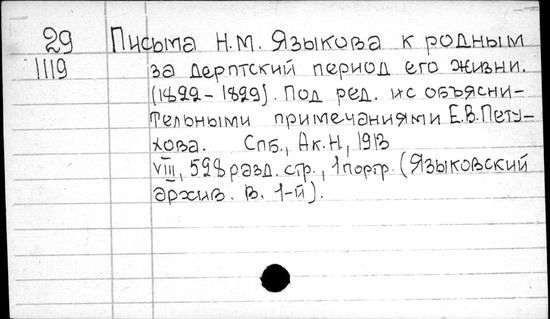 29 Письма Н.М. Языкова к родным
1119 за дерптский период его жизни.
(1822-1829). Под ред. и с объясни-
тельными примечаниями Е.В. Пету-
хова. Спб., Ак. Н, 1913
VIII, 528 разд. стр., 1 портр. (Языковский
архив. в. 1-й).